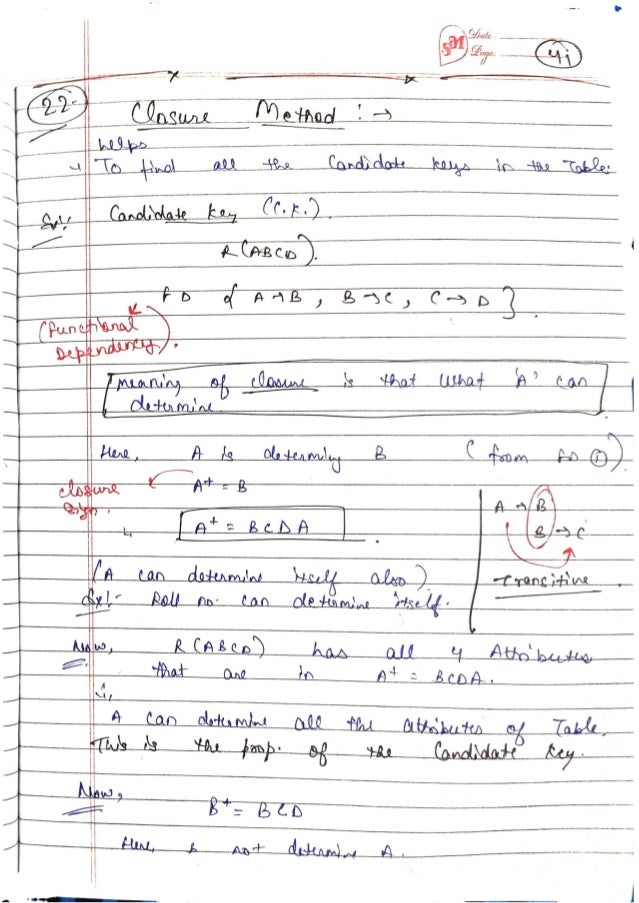 SM Date
Page
41
22.
Closure Method :→
helps
To find all the Candidate keys in the Table.
Ex:
Candidate key (C.K.).
R(ABCD).
FD { A→B, B→C, C→D }.
(Functional
Dependency).
meaning of closure is that what 'A' can
determine
Here, A is determing B (from FD ①)
closure
Sym.
A+ = B
A+ = BCDA
A → B
B → C
Transitive.
(A can determine itself also)
Ex:- Roll no. can determine itself.
Now, R(ABCD) has all 4 Attributes
that are in A+ = BCDA.
A can determine all the attributes of Table.
This is the prop. of the Candidate Key.
Now,
B+ = BCD
Here, B not determine A.